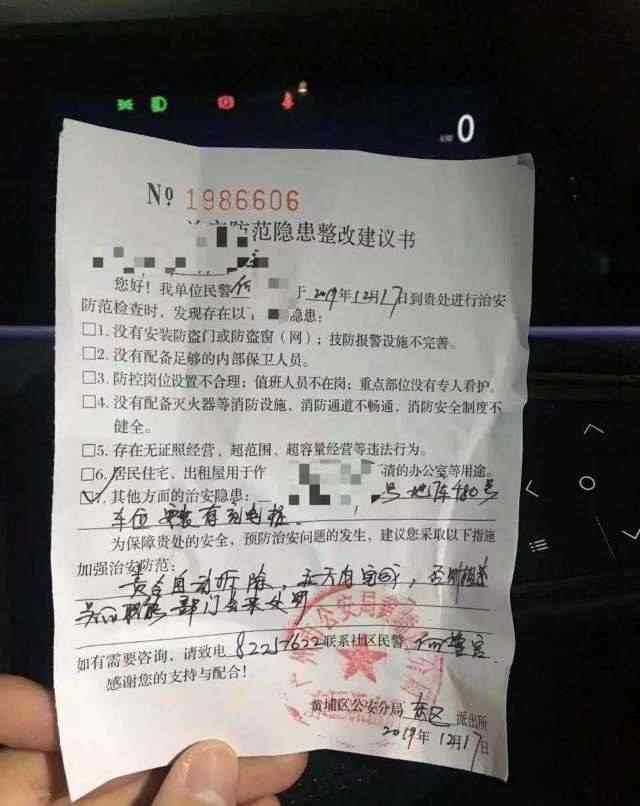 0
№ 1986606
治安防范隐患整改建议书
您好！我单位民警何 于2019年12月17日到贵处进行治安
防范检查时，发现存在以 隐患：
□1. 没有安装防盗门或防盗窗（网）；技防报警设施不完善。
□2. 没有配备足够的内部保卫人员。
□3. 防控岗位设置不合理；值班人员不在岗；重点部位没有专人看护。
□4. 没有配备灭火器等消防设施、消防通道不畅通，消防安全制度不
健全。
□5. 存在无证照经营、超范围、超容量经营等违法行为。
□6. 居民住宅、出租屋用于作 请的办公室等用途。
☑7. 其他方面的治安隐患： 号地库480号
车位安装有充电桩.
为保障贵处的安全，预防治安问题的发生，建议您采取以下措施
加强治安防范：
责令自动拆除，五天内完成，否则
职能部门
如有需要咨询，请致电 82257622 联系社区民警 何警官.
感谢您的支持与配合！
黄埔区公安分局 东区 派出所
2019年12月17日